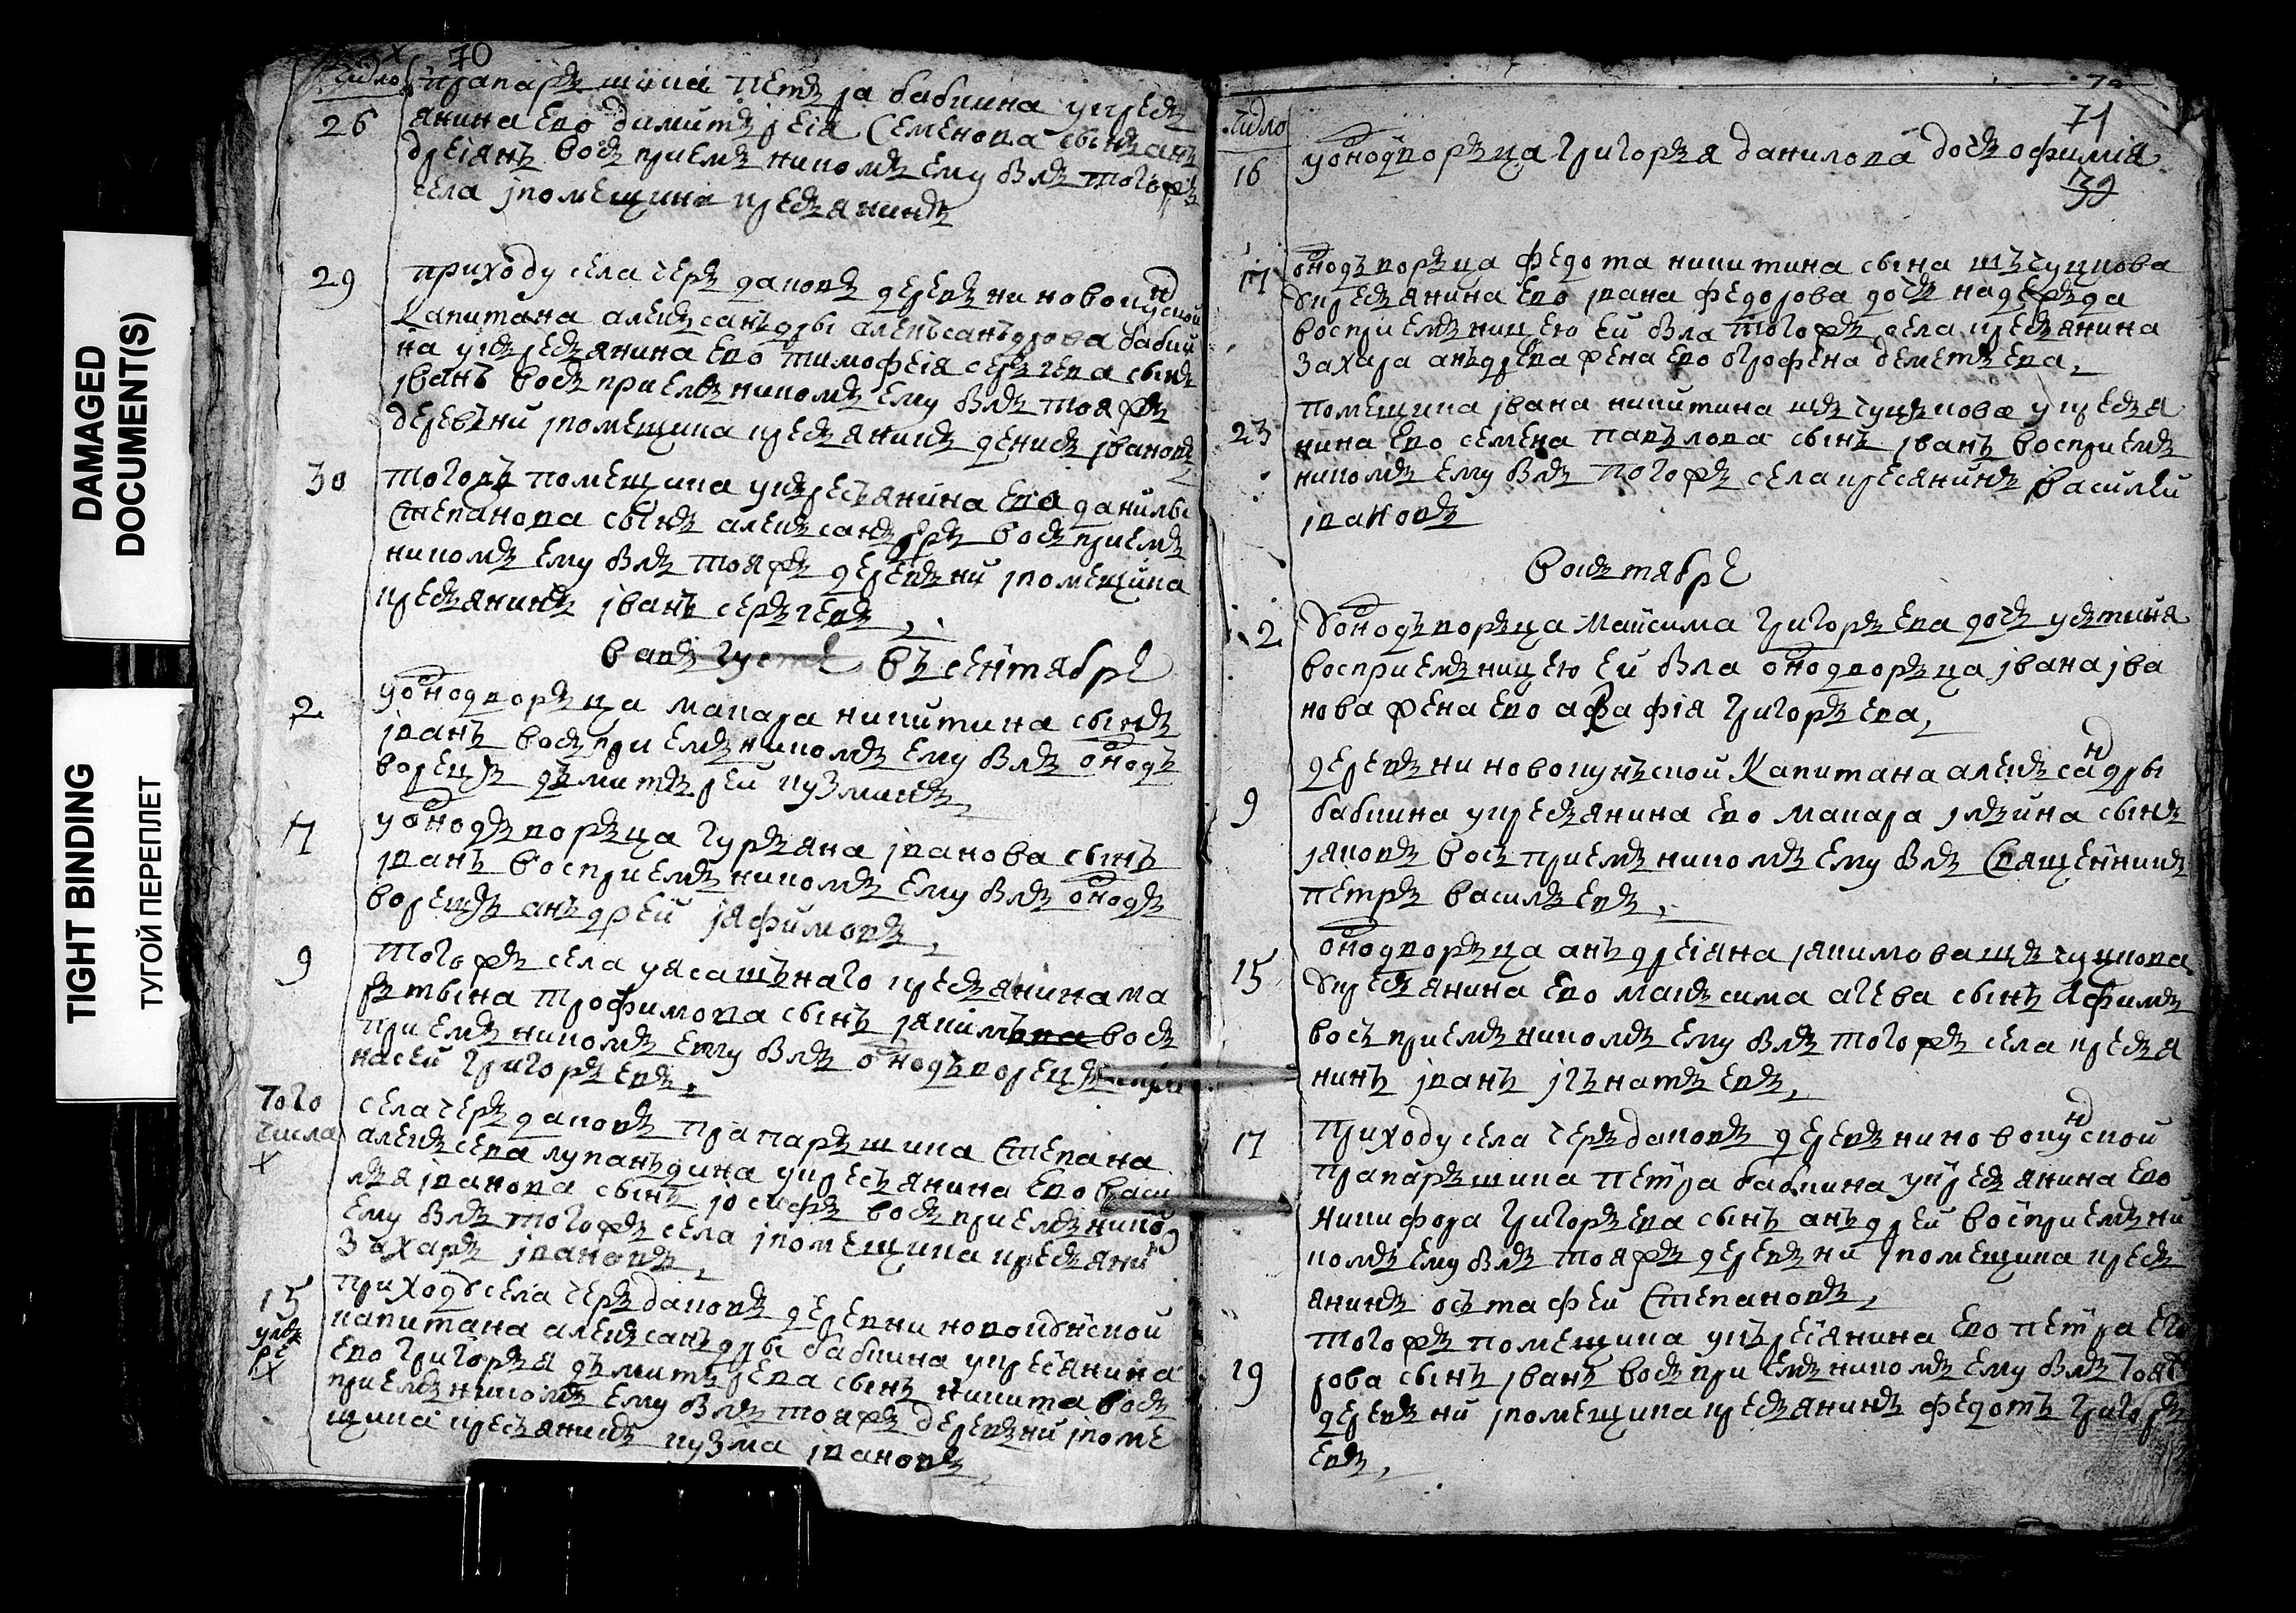 DAMAGED
DOCUMENT(S)
TIGHT BINDING
ТУГОЙ ПЕРЕПЛЕТ
70
число
прапоръшика петъра бабкина укресъ
26 янина ево димитъреія семенова сынъ анъ
дреіянъ восъприемъникомъ ему былъ тогожъ
села ипомещика кресъянинъ
29 приходу села черъдаковъ деревъни новокунской
капитана алекъсанъдры алекъсанъдрова бабки
на укъресъянина ево тимофеія серъгева сынъ
іванъ восъприемъникомъ ему былъ тояжъ
деревъни іпомещика кресъянинъ денисъ івановъ
30 тогожъ помещика укъресъянина ево данилы
степанова сынъ алекъсанъдръ восъприемъ
никомъ ему былъ тояжъ деревъни іпомещика
кресъянинъ іванъ серъгевъ
вавъгусте въ сентябре
2 уоднодворъца макара никитина сынъ
іванъ восъприемъникомъ ему былъ однодъ
ворецъ дъмитърей кузминъ
17 уоднодъворъца гуръяна іванова сынъ
іванъ восприемъникомъ ему былъ однодъ
ворецъ анъдрей іяфимовъ
9 тогожъ села уясашънаго кресъянина ма
рътына трофимова сынъ іякимъ восъ
приемъникомъ ему былъ однодъворецъ
насей григоръевъ
Того села черъдаковъ прапаръшика степана
числа алекъсева лупанъдина укресъянина ево васи
х лъя іванова сынъ іосифъ восъприемъником
ему былъ тогожъ села іпомещика кресъянин
захаръ івановъ
15 приходу села черъдаковъ деревни новокунской
капитана алекъсанъдры бабкина укресянина
ево григоръя дъмитърева сынъ никита восъ
приемъникомъ ему былъ тояжъ деревъни іпоме
щика кресъянинъ кузма івановъ
71
39
число
16 уоднодворъца григоръя данилова дочъ офимія
17 однодъворъца федота никитина сына шъчуцкова
укресъянина ево івана федорова дочъ надежъда
восприемъницею ей была тогожъ села кресъянина
захара анъдрева жена ево огрофена деметъева
помещика івана никитина шъчуцкова укресъя
23 нина ево семена павълова сынъ іванъ восприемъ
никомъ ему былъ тогожъ села кресянинъ василей
івановъ
вокътябре
2 уоднодъворъца максима григоръева дочъ устиня
восприемъницею ей была однодворъца івана іва
нова жена ево агафія григоръева
деревъни новокунъской капитана алекъсандры
9 бабкина укресъянина ево макара ілъина сынъ
іяковъ восъприемъникомъ ему былъ священникъ
петръ василъевъ
однодворъца анъдреіяна іякимова шъчуцкова
15 укресъянина ево макъсима агева сынъ яфимъ
восъприемъникомъ ему былъ тогожъ села кресъя
нинъ іванъ ігънатъевъ
17 приходу села черъдаковъ деревъни новокунской
прапаръшика петра бабкина укресъянина ево
никифора григоръева сынъ анъдрей восприемъни
комъ ему былъ тояжъ деревъни іпомещика кресъ
янинъ осътафей степановъ
тогожъ помещика укъресянина ево петра его
19 рова сынъ іванъ восъприемъникомъ ему былъ тояж
деревъни іпомещика кресъянинъ федотъ григоръ
евъ